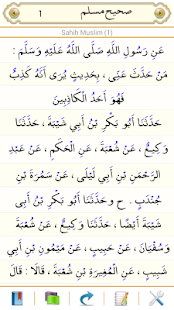 1 صحيح مسلم
Sahih Muslim (1)
عَنِ رَسُولِ اللَّهِ صَلَّى اللَّهُ عَلَيْهِ وَسَلَّمَ :
مَنْ حَدَّثَ عَنِّي ، بِحَدِيثٍ يُرَى أَنَّهُ كَذِبٌ
فَهُوَ أَحَدُ الْكَاذِبِينَ
حَدَّثَنَا أَبُو بَكْرِ بْنُ أَبِي شَيْبَةَ ، حَدَّثَنَا
وَكِيعٌ ، عَنْ شُعْبَةَ ، عَنِ الْحَكَمِ ، عَنْ عَبْدِ
الرَّحْمَنِ بْنِ أَبِي لَيْلَى ، عَنْ سَمُرَةَ بْنِ
جُنْدَبٍ . ح و حَدَّثَنَا أَبُو بَكْرِ بْنُ أَبِي
شَيْبَةَ أَيْضًا ، حَدَّثَنَا وَكِيعٌ ، عَنْ شُعْبَةَ
وَسُفْيَانَ ، عَنْ حَبِيبٍ ، عَنْ مَيْمُونِ بْنِ أَبِي
شَبِيبٍ ، عَنِ الْمُغِيرَةِ بْنِ شُعْبَةَ ، قَالَا : قَالَ